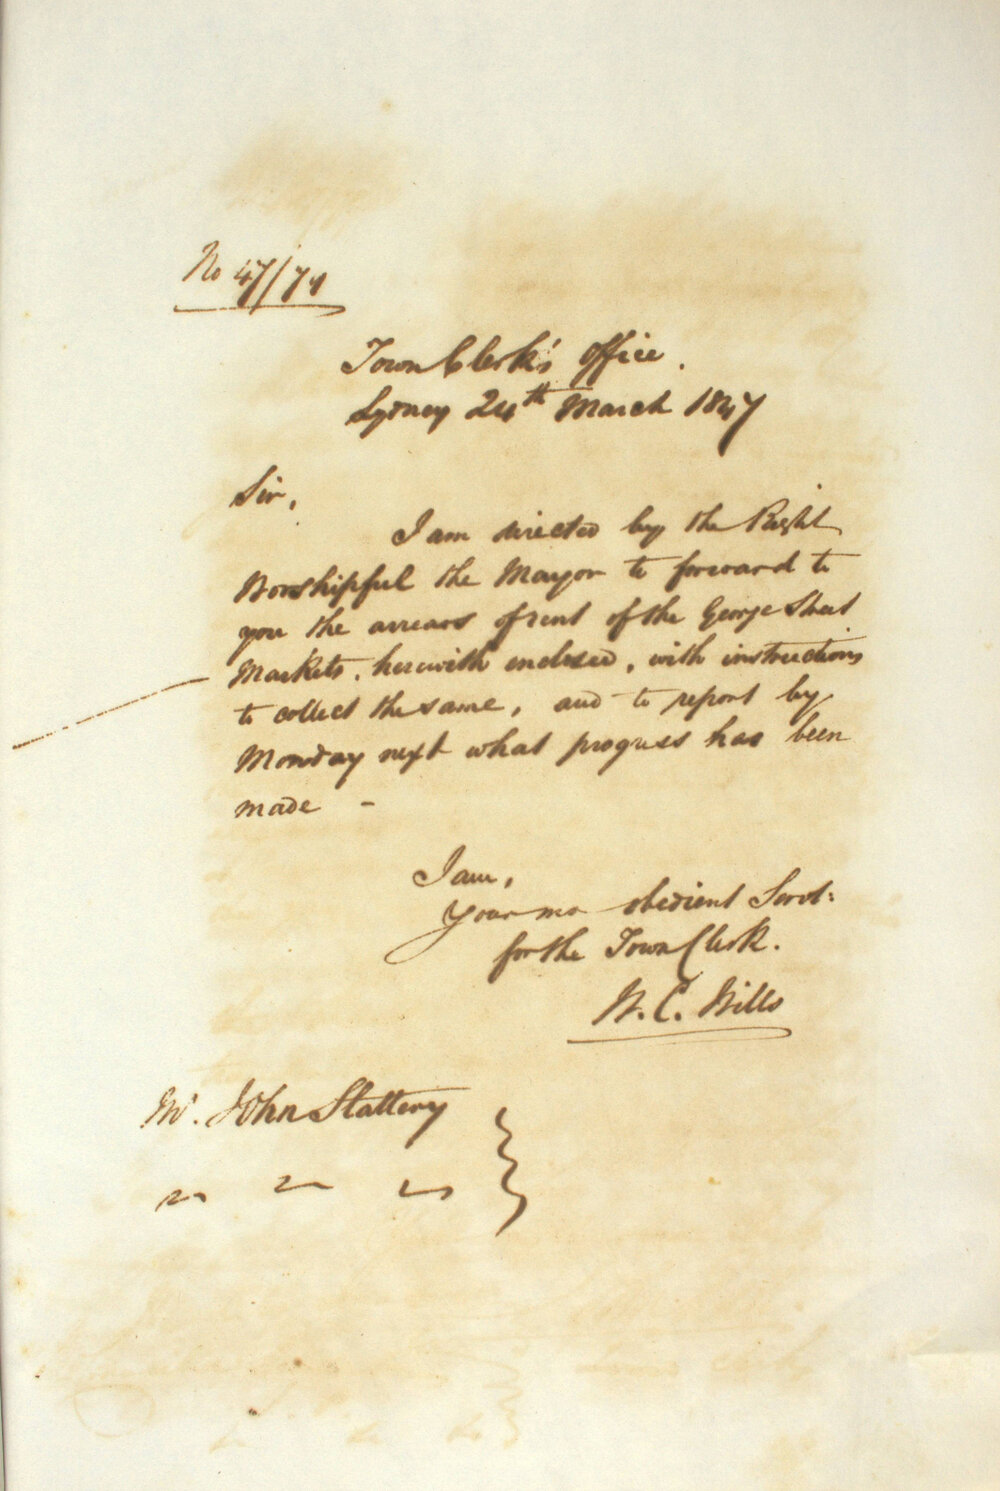 No 47/74
Town Clerk's Office.
Sydney 24th March 1847
Sir,
I am directed by the Right
Worshipful the Mayor to forward to
you the arrears of rent of the George Street
Markets, herewith enclosed, with instructions
to collect the same, and to report by
Monday next what progress has been
made -
I am,
Your mo obedient Servt:
for the Town Clerk.
W. C. Wills
Mr. John Slattery